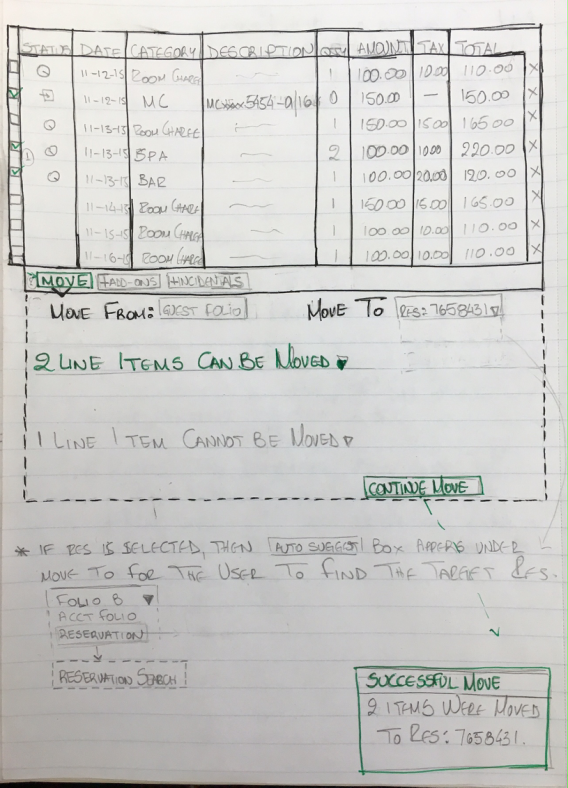 STATUS DATE CATEGORY DESCRIPTION QTY AMOUNT TAX TOTAL
11-12-15 ROOM CHARGE 1 100.00 10.00 110.00 X
11-12-15 MC 5454-0/16 0 150.00 — 150.00 X
11-13-15 ROOM CHARGE 1 150.00 15.00 165.00 X
1 11-13-15 SPA 2 100.00 10.00 220.00 X
11-13-15 BAR 1 100.00 20.00 120.00 X
11-14-15 ROOM CHARGE 1 150.00 15.00 165.00 X
11-15-15 ROOM CHARGE 1 100.00 10.00 110.00 X
11-16-15 ROOM CHARGE 1 100.00 10.00 110.00 X
? MOVE +ADD-ONS +INCIDENTALS
MOVE FROM: GUEST FOLIO MOVE TO RES: 7658431
2 LINE ITEMS CAN BE MOVED
1 LINE ITEM CANNOT BE MOVED
CONTINUE MOVE
* IF RES IS SELECTED, THEN AUTO SUGGEST BOX APPERS UNDER
MOVE TO FOR THE USER TO FIND THE TARGET RES.
FOLIO B
ACCT FOLIO
RESERVATION
RESERVATION SEARCH
SUCCESSFUL MOVE
2 ITEMS WERE MOVED
TO RES: 7658431.